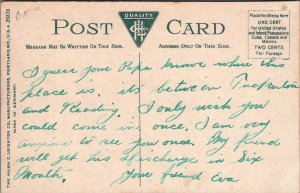 POST CARD
QUALITY
MESSAGE MAY BE WRITTEN ON THIS SIDE.
ADDRESS ONLY ON THIS SIDE.
Place the Stamp here
ONE CENT
for United States
and Island Possessions
Cuba, Canada and
Mexico.
TWO CENTS
For Foreign
THE HUGH C. LEIGHTON CO., MANUFACTURERS, PORTLAND, ME., U.S.A.
MADE IN GERMANY.
I guess your Papa knows where this
place is, its between Tuckerton
and Reading. I only wish you
could come in once. I am very
anxious to see you once. My friend
will get his Discharge in Six
Month. Your friend Eva